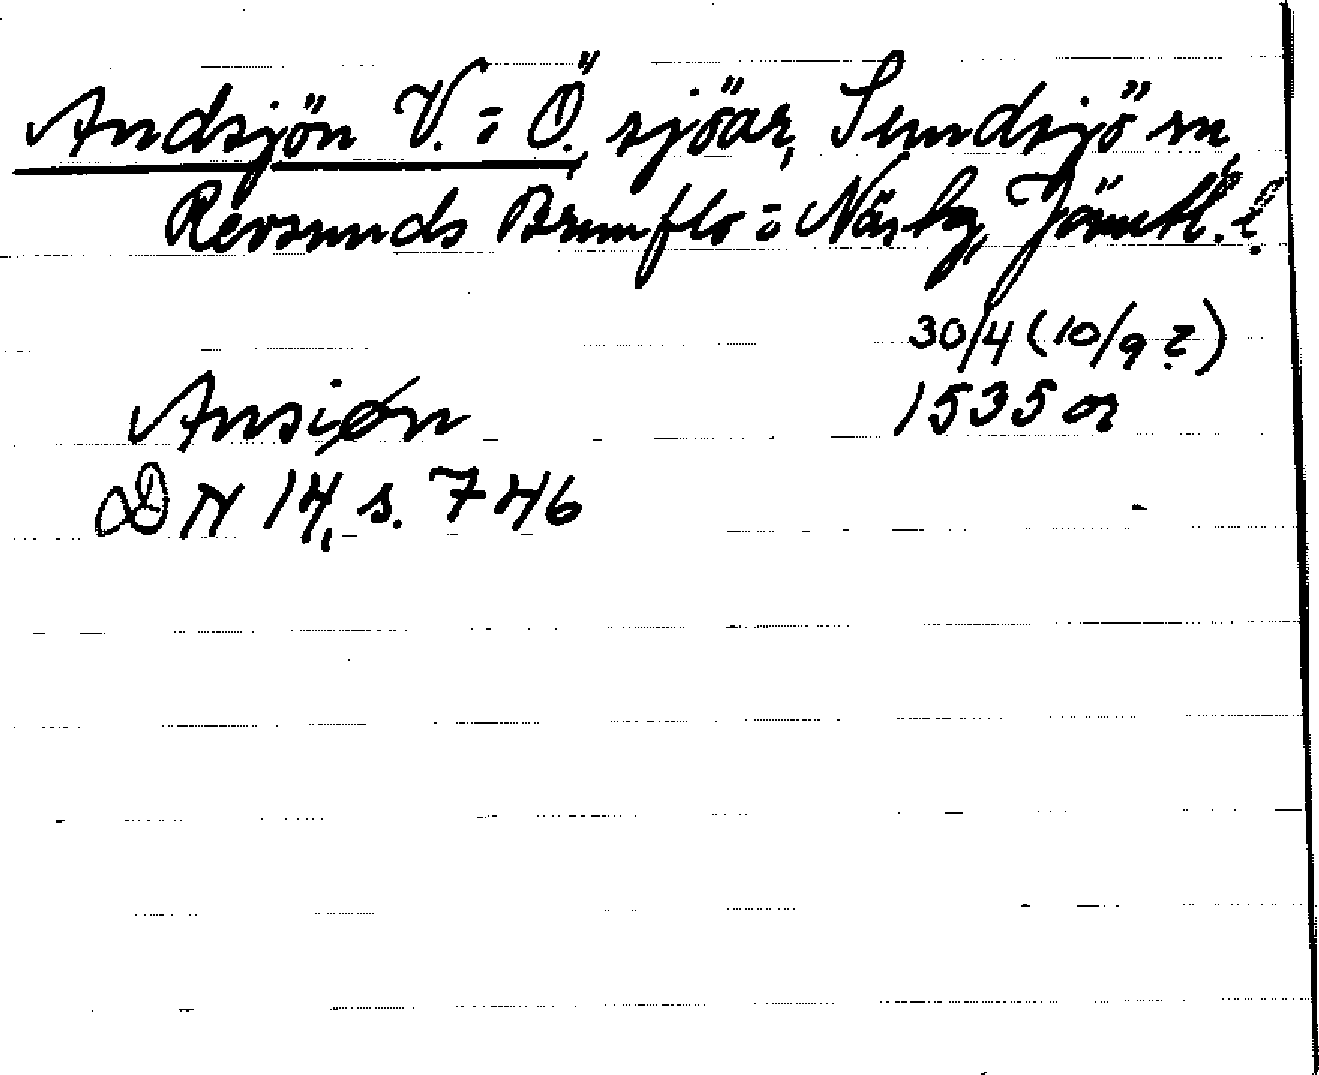 Andsjön V. o Ö., sjöar, Sundsjö sn,
Revsunds Brunflo o Näs tg, Jämtl. l.
30/4 (10/9 ?)
Ansiøn 1535 or
DN 14, s. 746